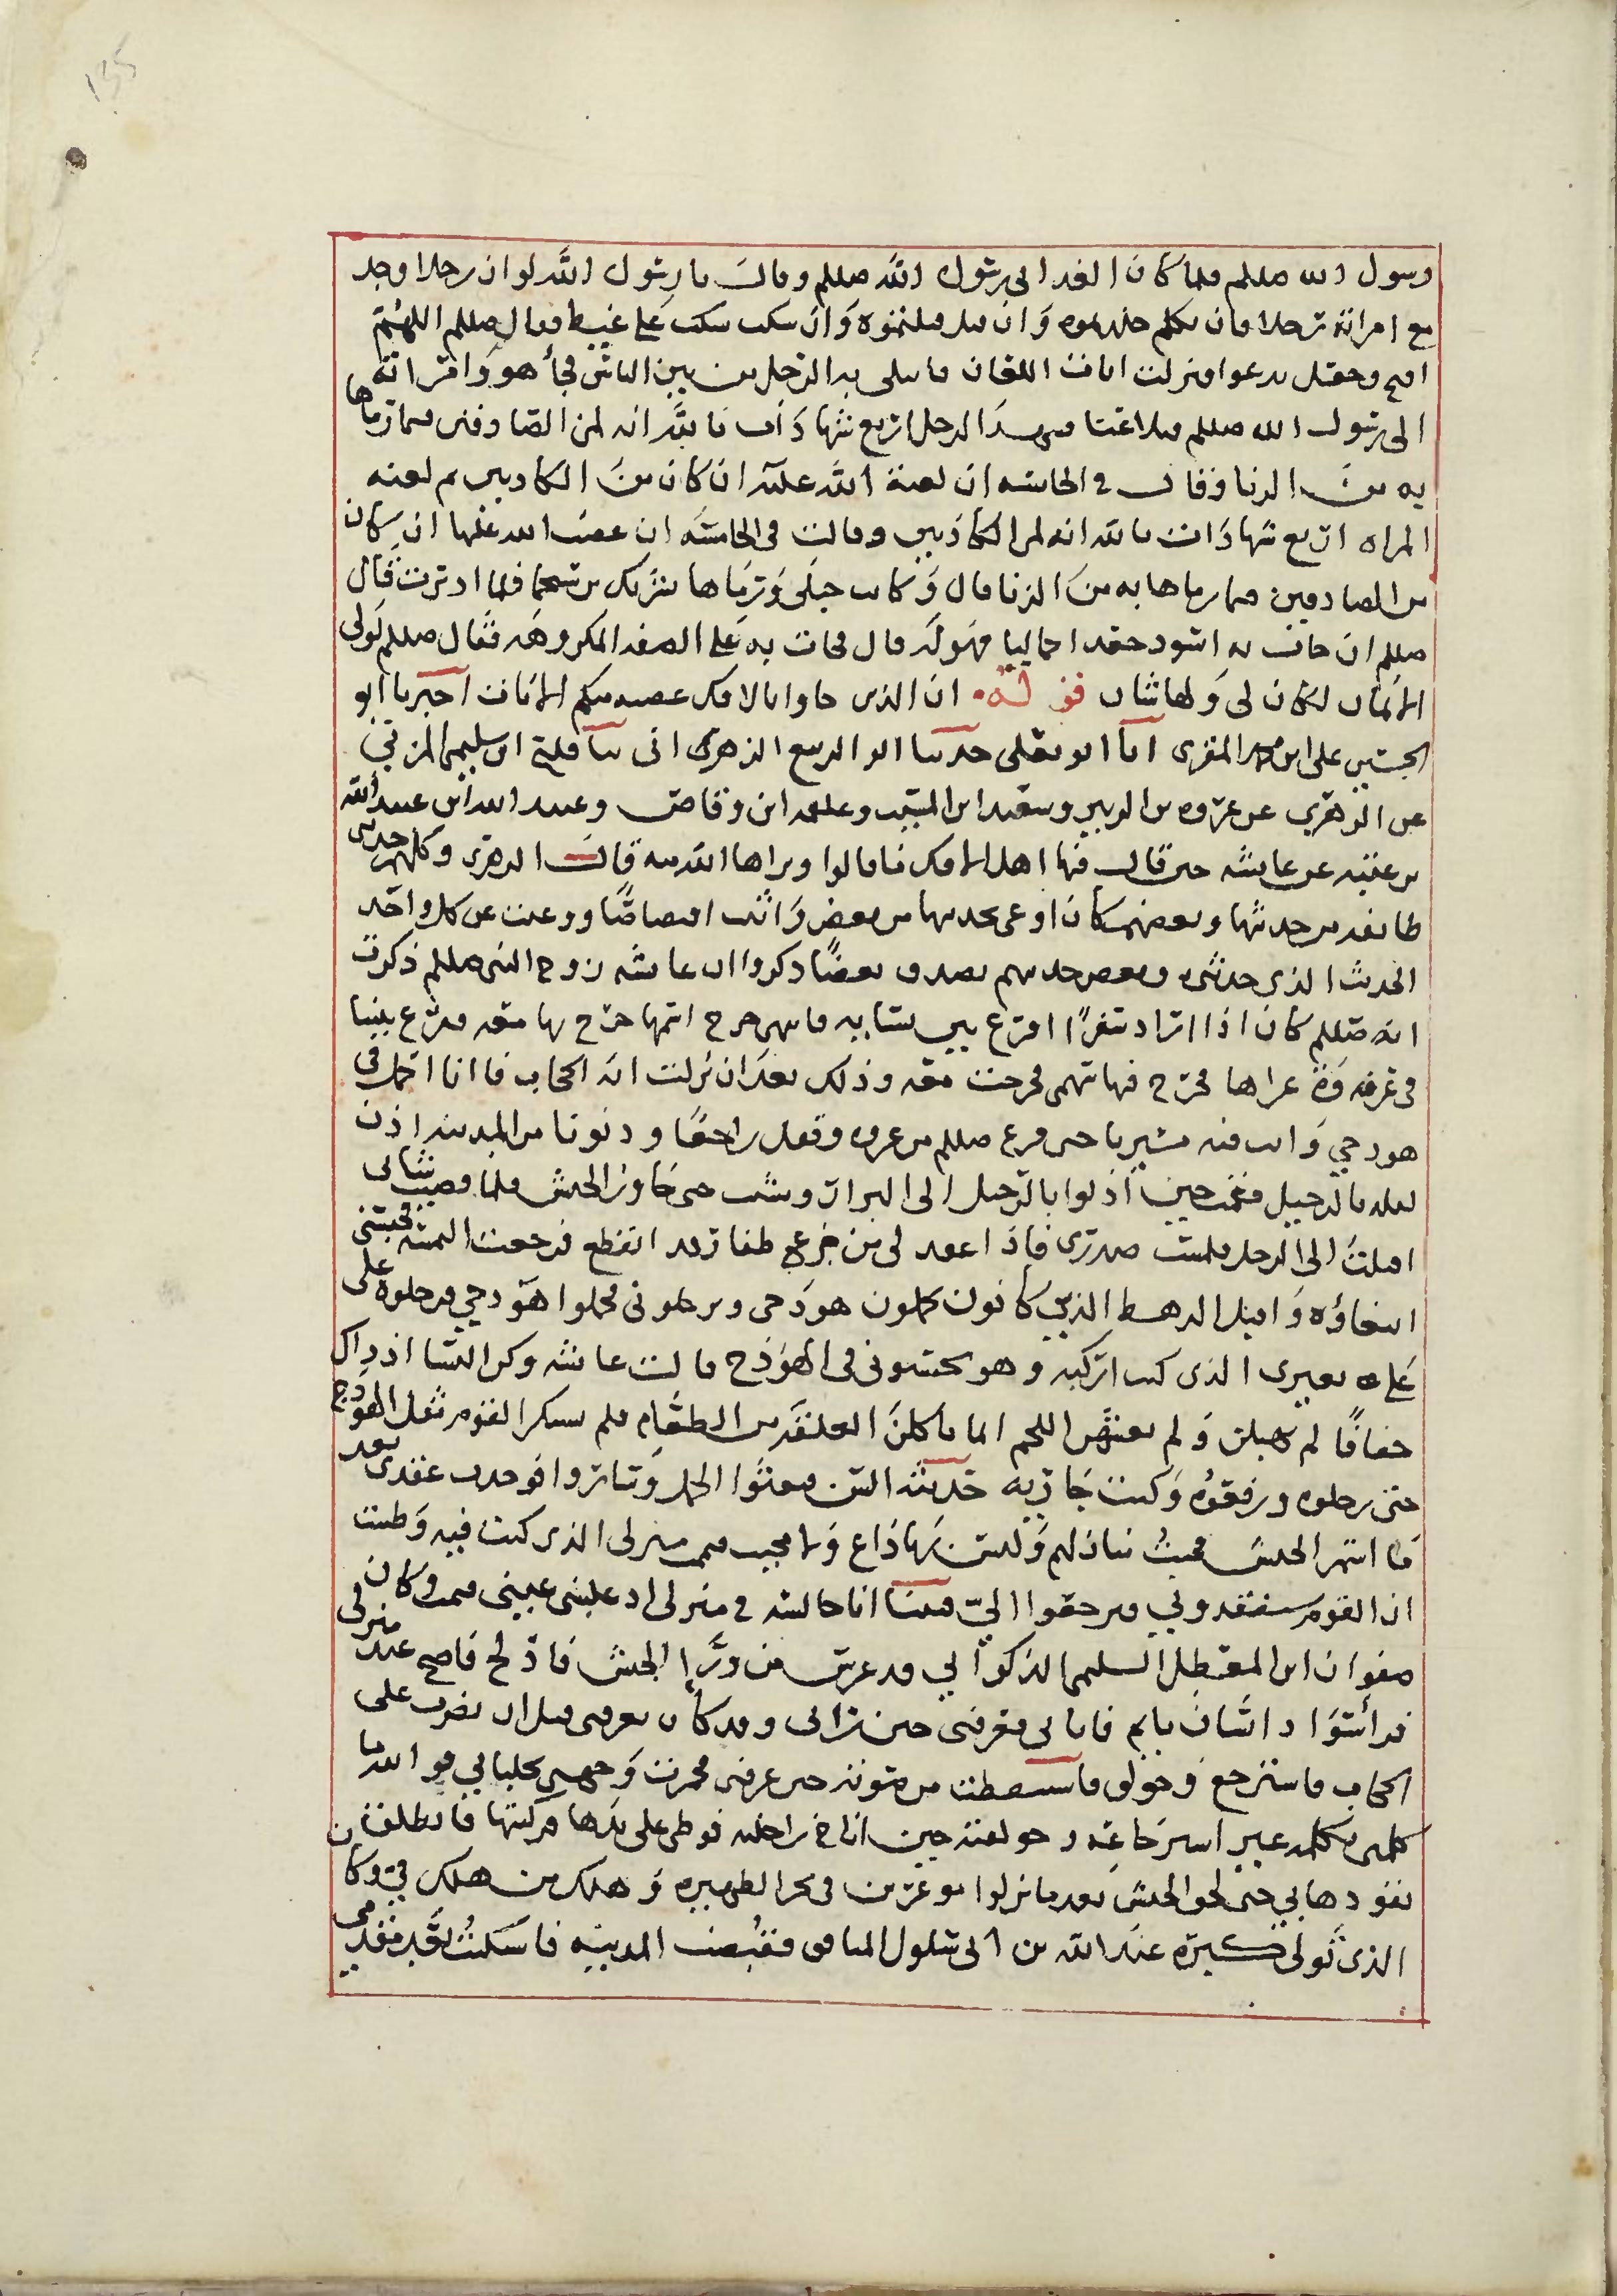 رسول الله صللم فلما كان الغد اتى رسول الله صللم وقال يا رسول الله لو ان رجلا وجد
مع امرانه رجلا فان تكلم جلدتموه وان قتل قتلتموه وان سكت سكت على غيظ فقال صللم اللهم
افتح وجعل يدعوا فنزلت ايات اللعان فابتلى به الرجل من بين الناس فجأ هو وامراته
الى رسول الله صللم فتلاعنا فشهد الرجل اربع شهادات بالله انه لمن الصادقين فيما رماها
به من الزنا وقال في الخامسه ان لعنة الله عليه ان كان من الكاذبين ثم لعنه
المراه اربع شهادات بالله انه لمن الكاذبين وقالت في الخامسه ان غضب الله عليها ان كان
من الصادقين فيما رماها به من الزنا قال وكانت حبلى ورماها بشريك بن سحما فلما ادبرت قال
صللم ان جات به اسود جعدا جماليا فهو له قال فجات به على الصفه المكروهه فقال صللم لولى
الايمان لكان لي ولها شان قوله ان الذين جاوا بالافك عصبه منكم الايات اخبرنا ابو
الحسين على ابن محمد المقرى انا ابو يعلى حدثنا ابو الربيع الزهرى اني ثنا فليح ابن سليمن المزني
عن الزهري عن عروه بن الزبير وسعيد ابن المسيب وعلقمه ابن وقاص وعبيد الله ابن عبد الله
بن عتبه عن عايشه حين قال فيها اهل الافك ما قالوا وبراها الله منه قال الزهرى وكلهم حدثنى
طايفه من حديثها وبعضهم كان اوعى لحديثها من بعض واثبت اقتصاصًا ووعيت عن كل واحد
الحديث الذى حدثنى وبعض حديثهم يصدق بعضًا ذكروا ان عايشه زوج النبى صللم ذكرت
انه صللم كان اذا اراد سفرًا اقرع بين نسايه فايتهن خرج اسمها خرج بها معه فاقرع بيننا
في غزوه غزاها فخرج فيها سهمى فخرجت معه وذلك بعد ان نزلت ايه الحجاب فانا احمل في
هودجي وانزل فيه مسيرنا حتى فرغ صللم من غزوه وقفل راجعًا ودنونا من المدينه اذن
ليله بالرحيل فقمت حين اذنوا بالرحيل الى البراز ومشيت حتى جاوزت الجيش فلما قضيت شانى
اقبلت الى الرحل فلمست صدرى فاذا عقد لى من جزع ظفار قد انقطع فرجعت التمسه فحبسنى
ابتغاؤه واقبل الرهط الذين كانون يحملون هودجى ويرحلونى فحملوا هودجي فرحلوه على
على بعيرى الذى كنت اركبه وهو يحسبونى في الهودج قالت عائشه وكن النسا اذ ذاك
خفافًا لم يهبلن ولم يغشهن اللحم انما ياكلن العلقه من الطعام فلم يستنكر القوم ثقل الهودج
حتى رحلوه ورفعوه وكنت جاريه حديثه السن فبعثوا الجمل وساروا فوجدت عقدى بعد
ما استمر الجيش فجيت منازلهم وليس بها داع ولا مجيب فيممت منزلى الذى كنت فيه وظننت
ان القوم سيفقدوني فيرجعوا اليّ فبينا انا جالسه في منزلى اذ غلبتنى عينى فنمت وكان
صفوان ابن المعطل السلمى الذكواني قد عرس من ورا الجيش فادلج فاصبح عند منزلى
فرأى سواد انسان نايم فاتانى فعرفنى حين رانى وقد كان يعرفنى قبل ان يضرب على
الحجاب فاسترجع وحولق فاستيقظت من صوته حين عرفنى فخمرت وجهي بجلبابي فوالله ما
كلمنى كلمه غير استرجاعه وحولقته حين اناخ راحلته فوطى على يدها فركبتها فانطلق
يقودها بي حتى لحق الجيش بعد ما نزلوا موغرين في نحر الظهيره وهلك من هلك في وكان
الذى تولى كبره عبد الله بن ابى سلول المنافق فقدمت المدينه فاشتكيت بعد مقدمى